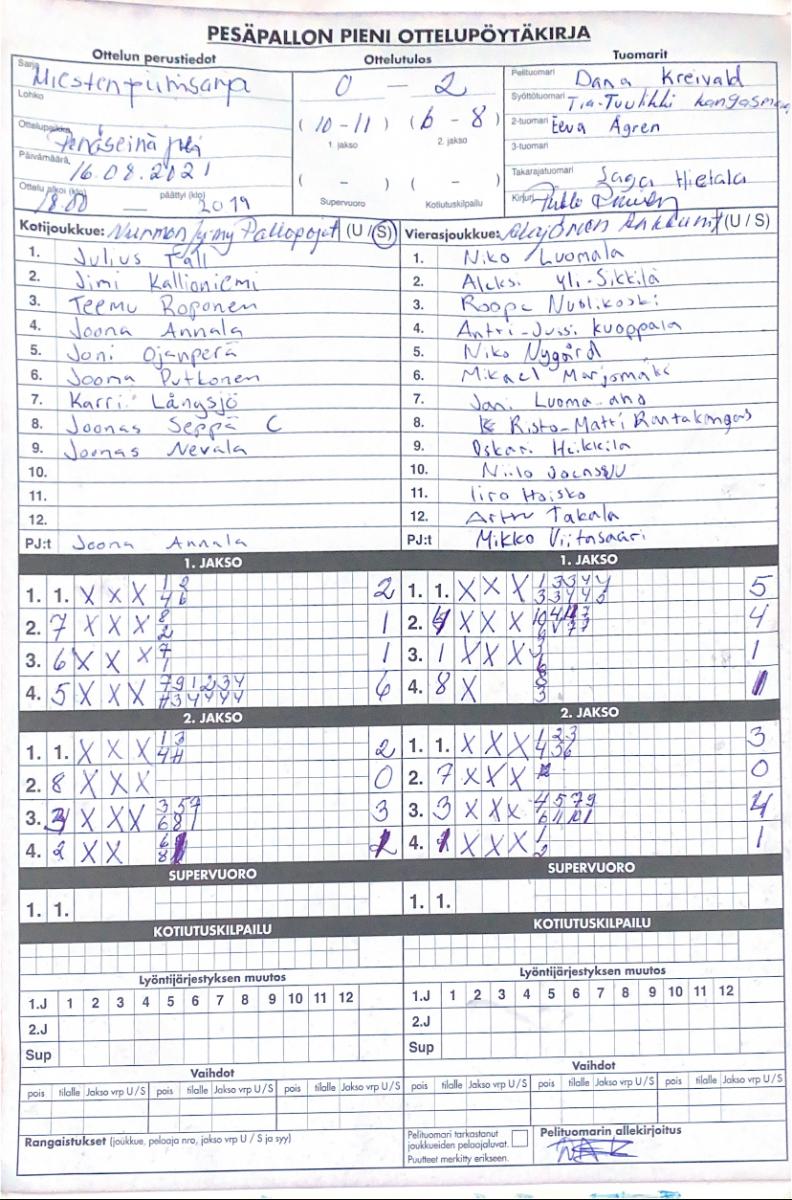 PESÄPALLON PIENI OTTELUPÖYTÄKIRJA
Ottelun perustiedot Ottelutulos Tuomarit
Sarja Miesten piirisarja
Lohko
Ottelupaikka
Päivämäärä, 16.08.2021
Ottelu alkoi (klo) 18.00 — päättyi (klo) 2019
0 — 2
(10-11) (6-8)
1. jakso 2. jakso
( - ) ( - )
Supervuoro Kotiutuskilpailu
Pelituomari Dana Kreivald
Syöttötuomari Tia-Tuulikki Kangasmaa
2-tuomari Eeva Ågren
3-tuomari
Takarajatuomari Saga Hietala
Kirjuri
Kotijoukkue: Nurmon Jymy Pallopojat (U / S)
1. Julius
2. Jimi Kallioniemi
3. Teemu Roponen
4. Joona Annala
5. Joni Ojanperä
6. Joona Putkonen
7. Karri Långsjö
8. Joonas Seppä C
9. Joonas Nevala
10.
11.
12.
PJ:t Joona Annala
Vierasjoukkue: Alajärven Ankkurit (U / S)
1. Niko Luomala
2. Aleksi Yli-Sikkilä
3. Roope Nuolikoski
4. Antti-Jussi Kuoppala
5. Niko Nygård
6. Mikael Marjomäki
7. Jani Luoma-aho
8. Risto-Matti Rantakangas
9. Oskari Heikkilä
10. Niilo Joensuu
11. Iiro Haisko
12. Arttu Takala
PJ:t Mikko Viitasaari
1. JAKSO 1. JAKSO
1. 1. X X X 1 2 2
4 6
2. 7 X X X 8 1
2
3. 6 X X X 7 1
1
4. 5 X X X 7 9 1 2 3 4 6
11 3 4 4 4 4
1. 1. X X X 1 3 3 4 4 5
3 3 4 4 5
2. X X X 4
3. 1 X X X 1
4. 8 X 8 1
3
2. JAKSO 2. JAKSO
1. 1. X X X 1 3 2
4 11
2. 8 X X X 0
3. X X X 3 5 7 3
6 8 1
4. 2 X X 6 1
8
1. 1. X X X 1 2 3 3
4 3 6
2. 7 X X X 0
3. 3 X X X 4 5 7 9 4
6 11 10 1
4. 1 X X X 1 1
2
SUPERVUORO SUPERVUORO
1. 1. 1. 1.
KOTIUTUSKILPAILU KOTIUTUSKILPAILU
Lyöntijärjestyksen muutos Lyöntijärjestyksen muutos
1.J 1 2 3 4 5 6 7 8 9 10 11 12 1.J 1 2 3 4 5 6 7 8 9 10 11 12
2.J 2.J
Sup Sup
Vaihdot Vaihdot
pois tilalle Jakso vrp U / S pois tilalle Jakso vrp U / S pois tilalle Jakso vrp U / S pois tilalle Jakso vrp U / S pois tilalle Jakso vrp U / S pois tilalle Jakso vrp U / S
Rangaistukset (joukkue, pelaaja nro, jakso vrp U / S ja syy)
Pelituomari tarkastanut
joukkueiden pelaajaluvat.
Puutteet merkitty erikseen.
Pelituomarin allekirjoitus